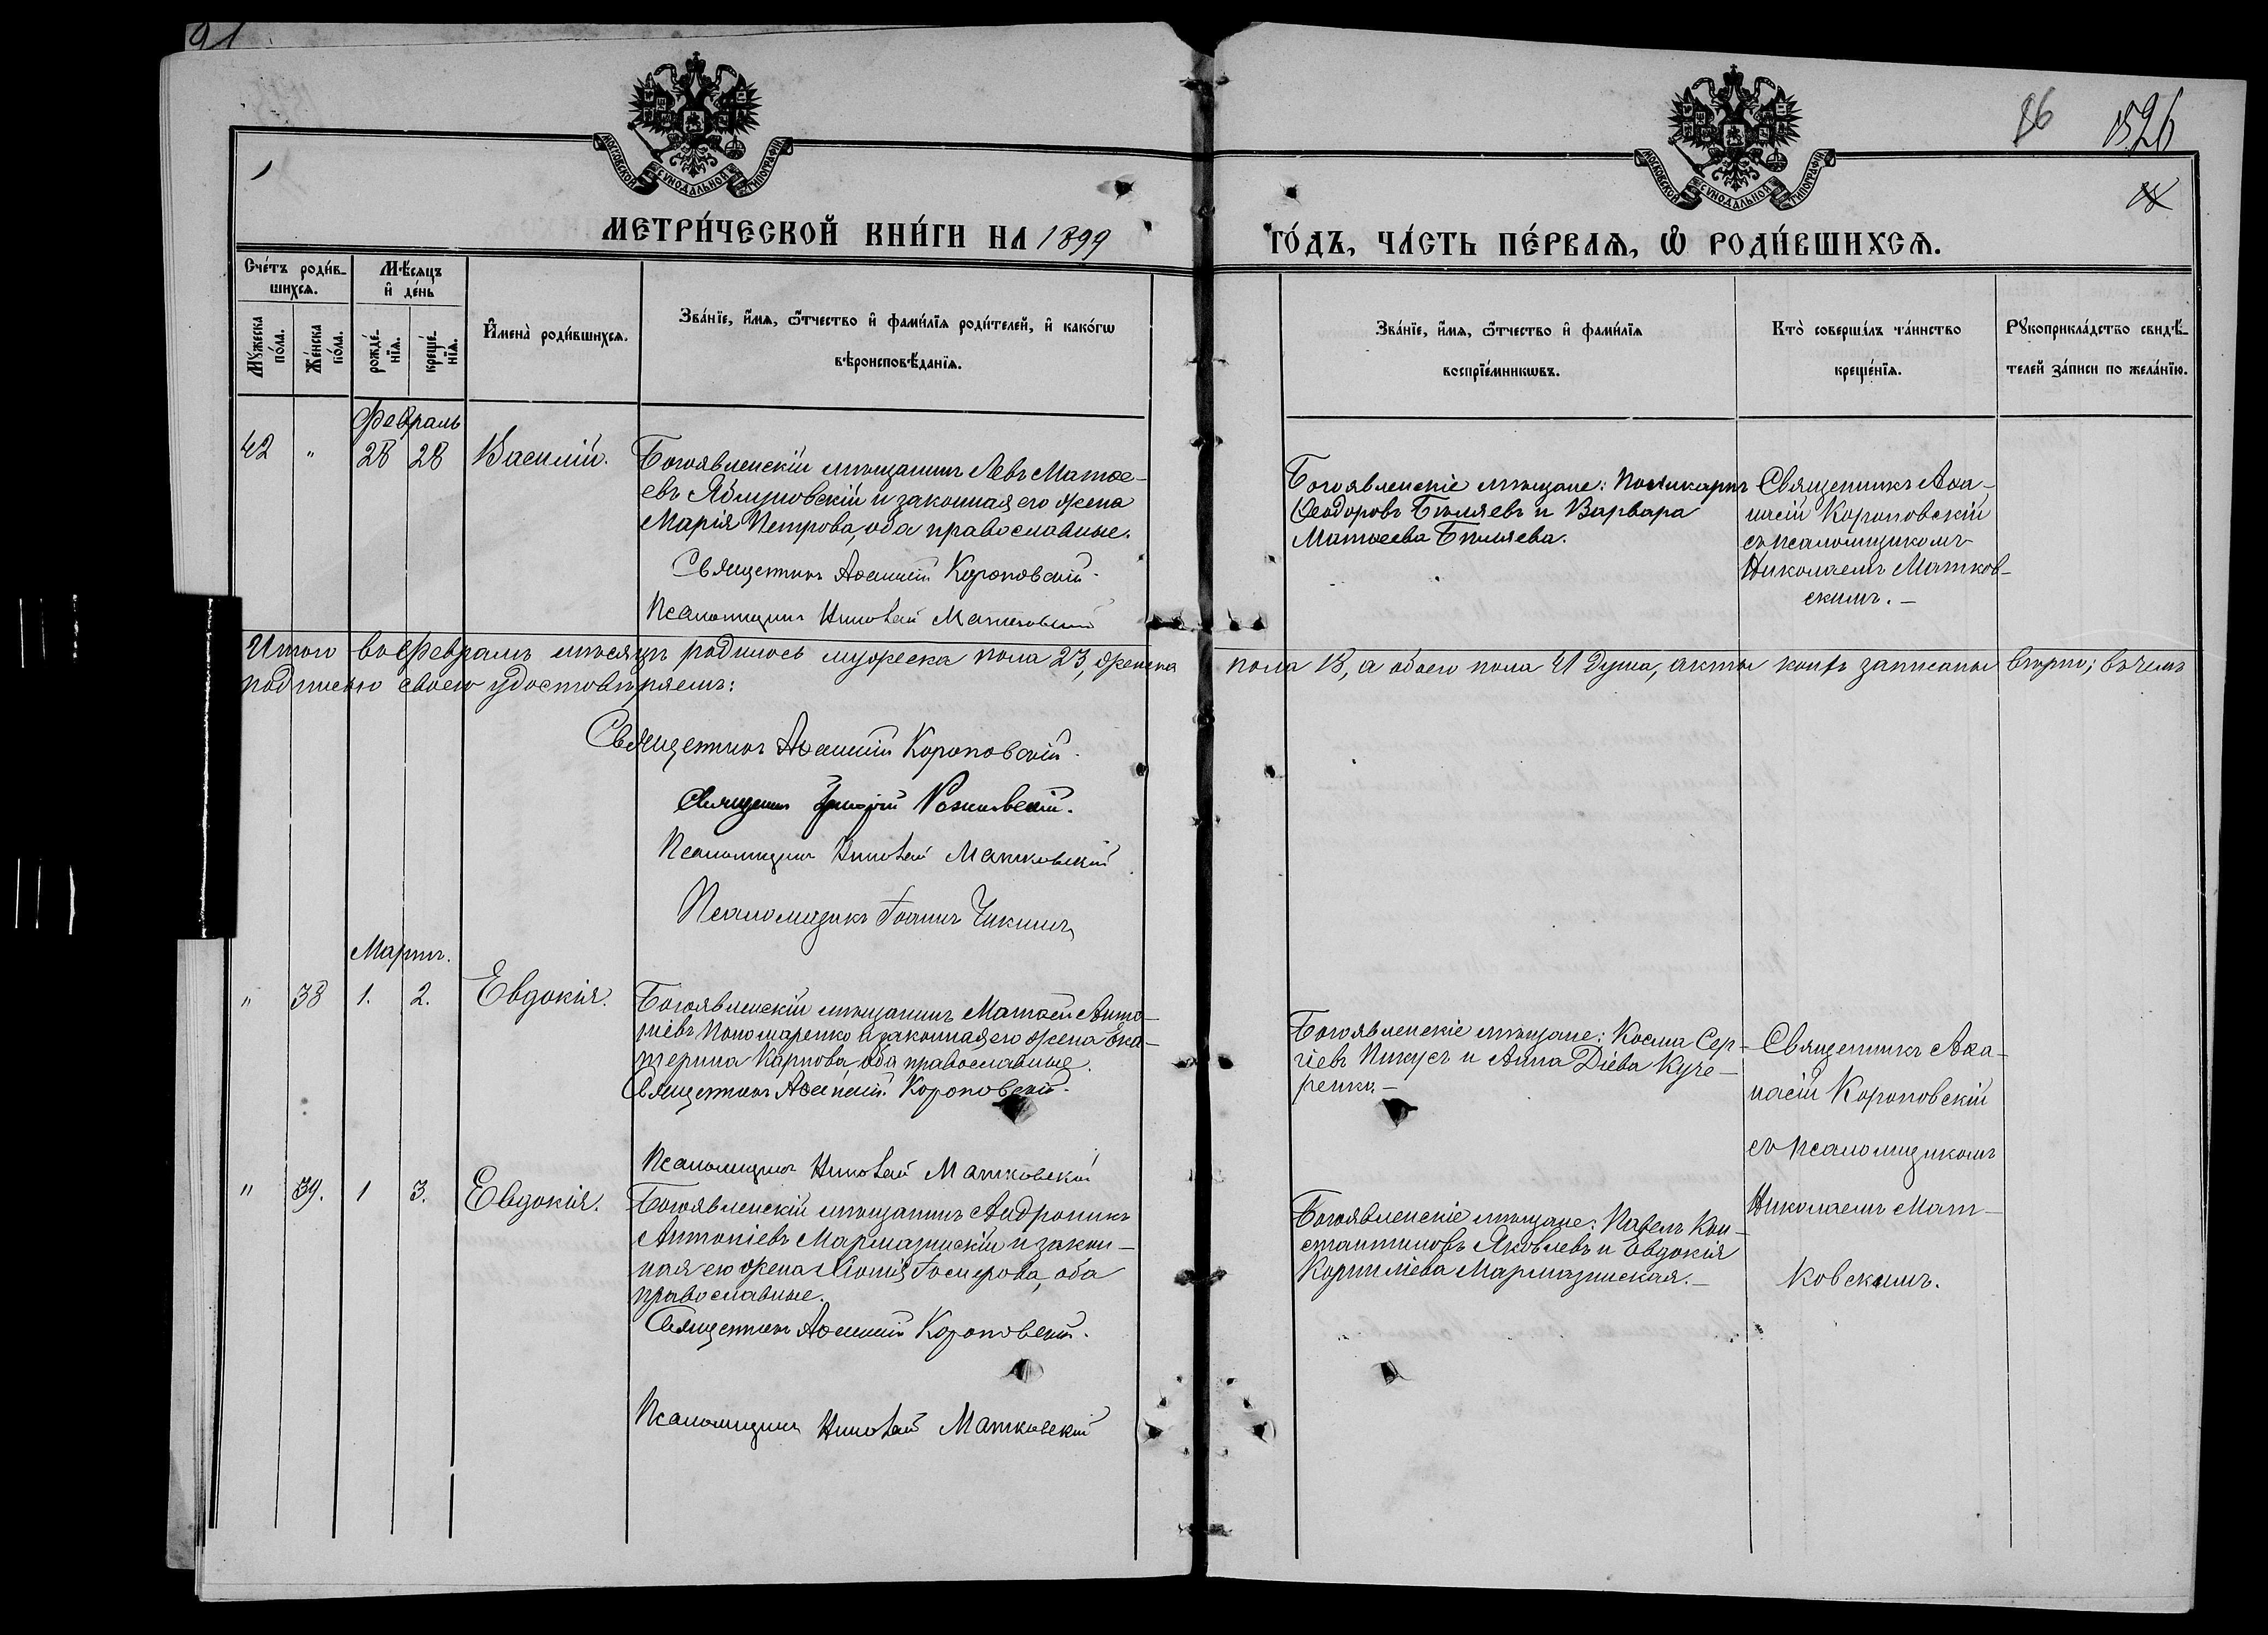 91
86
1526
МОСКОВСКОЙ СѴНОДАЛЬНОЙ ТИПОГРАФІИ
МОСКОВСКОЙ СѴНОДАЛЬНОЙ ТИПОГРАФІИ
МЕТРИ́ЧЕСКОЙ КНИ́ГИ НА 1899
ГО́ДЪ, ЧА́СТЬ ПЕ́РВАѦ, Ѡ҆ РОДИ́ВШИХСѦ.
Сче́тъ роди́в-
шихсѧ.
Мѣ́сѧцъ
и҆ де́нь
Мꙋ́жеска
по́ла.
Же́нска
по́ла.
рожде́-
нїѧ.
креще́-
нїѧ.
И҆мена̀ роди́вшихсѧ.
Зва́нїе, и҆́мѧ, ѻ҆́тчество и҆ фами́лїѧ роди́телей, и҆ како́гѡ
вѣроисповѣ́данїѧ.
Зва́нїе, и҆́мѧ, ѻ҆́тчество и҆ фами́лїѧ
воспрїе́мникѡвъ.
Кто̀ соверша́лъ та́инство
креще́нїѧ.
Рꙋкоприкла́дство свидѣ́-
телей за́писи по жела́нїю.
Февраль
42 " 28 28 Василій.
Богоявленскій мѣщанинъ Левъ Матѳе-
евъ Яблуновскій и законная его жена
Марія Петрова, оба православные.
Священникъ Аѳанасій Короповскій.
Псаломщикъ Николай Матковскій
Богоявленскіе мѣщане: Поликарпъ
Ѳеодоровъ Бѣляевъ и Варвара
Матѳеева Бѣляева.
Священникъ Аѳа-
насій Короповскій
съ псаломщикомъ
Николаемъ Матков-
скимъ. –
Итого въ Февралѣ мѣсяцѣ родилось мужеска пола 23, женска пола 18, а обоего пола 41 душа, акты коихъ записаны вѣрно; въ чемъ
подписью своею удостовѣряемъ:
Священникъ Аѳанасій Короповскій.
Священникъ Григорій
Псаломщикъ Николай Матковскій
Псаломщикъ Іоаннъ Чикинъ
Мартъ.
" 38 1. 2. Евдокія.
Богоявленскій мѣщанинъ Матѳей Анто-
ніевъ Пономаренко и законная его жена Ека-
терина Карпова, оба православные.
Священникъ Аѳанасій Короповскій.
Псаломщикъ Николай Матковскій
Богоявленскіе мѣщане: Косма Сер-
гіевъ и Анна Діева Куче-
ренко –
Священникъ Аѳа-
насій Короповскій
съ псаломщикомъ
Николаемъ Мат-
ковскимъ.
" 39. 1 3. Евдокія.
Богоявленскій мѣщанинъ Андроникъ
Антоніевъ Мармазинскій и закон-
ная его жена Хіонія оба
православные.
Священникъ Аѳанасій Короповскій.
Псаломщикъ Николай Матковскій
Богоявленскіе мѣщане: Павелъ Кон-
стантиновъ Яковлевъ и Евдокія
Корниліева Мармазинская. –